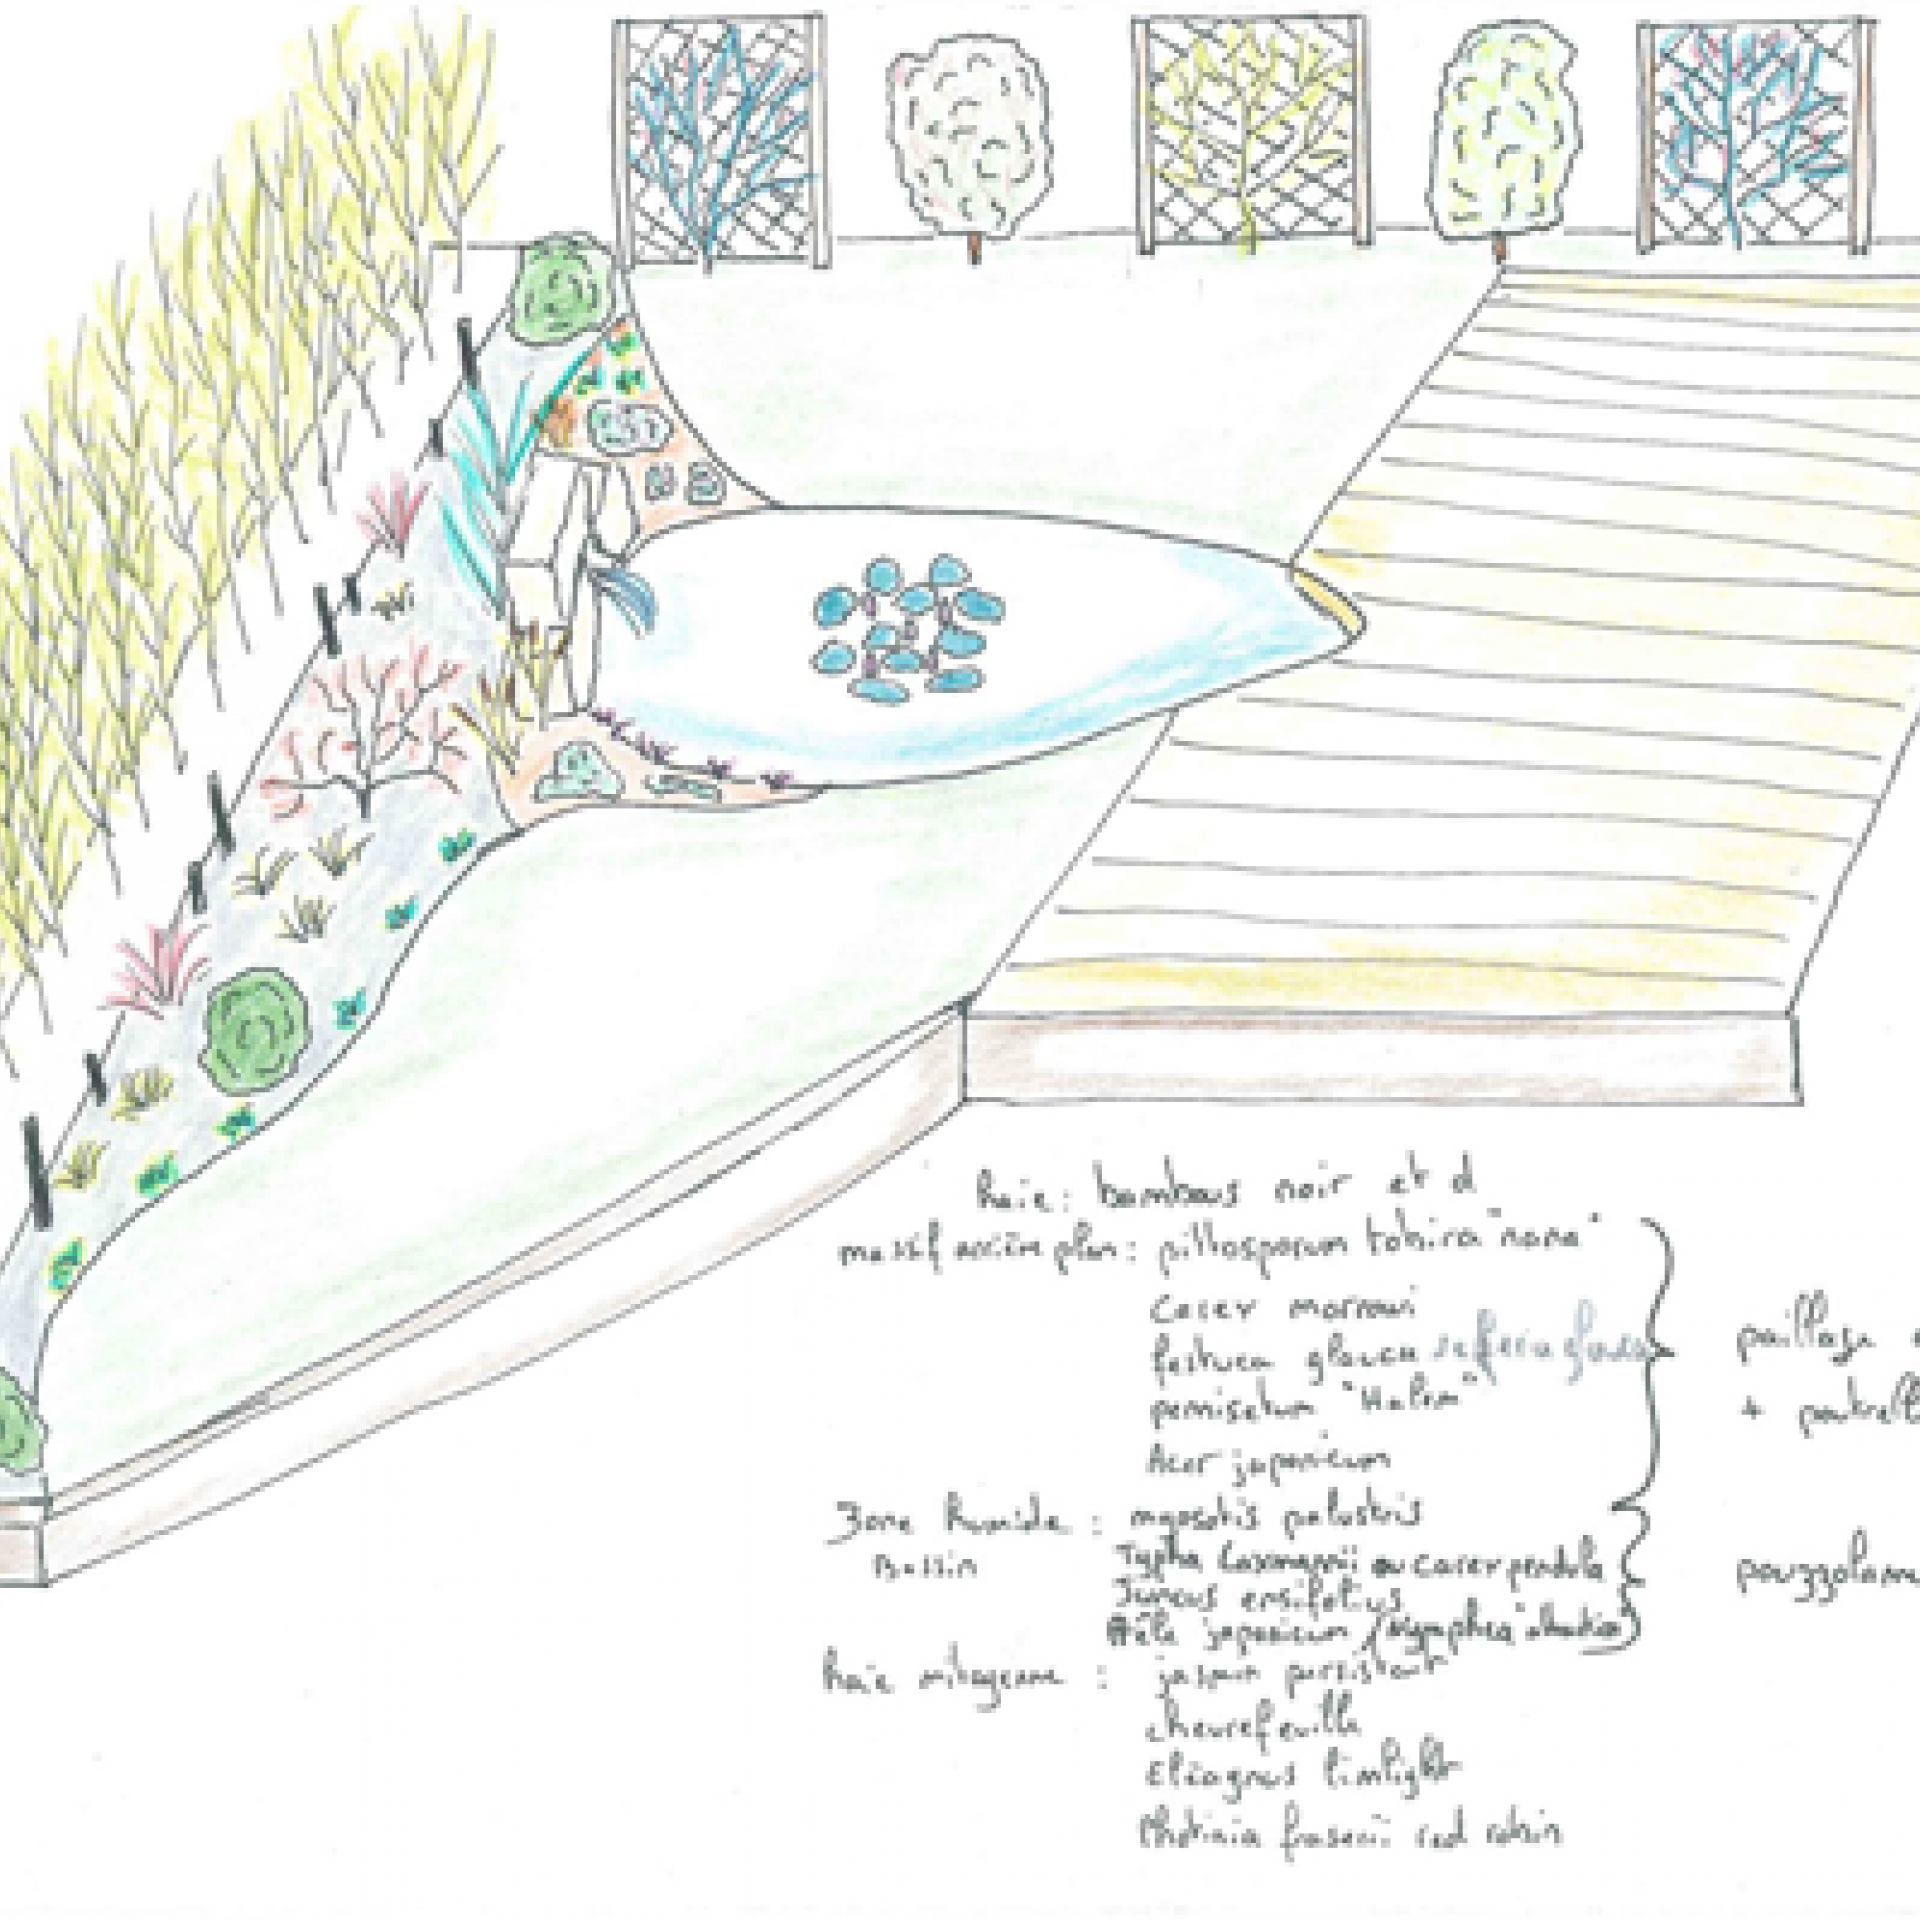 haie : bambous noir et d
massif arrière plan : pittosporum tobira "nana"
Carex morrowi
festuca glauca
pennisetum "Halem"
Acer japonicum
paillage
+ poutrell
Zone humide : myosotis palustris
Bassin
Typha Laxmannii ou carex pendula
Juncus ensifolius
japonicum (Nymphea
pouzzolane
haie mitoyenne : jasmin persistant
chevrefeuille
Eleagnus limlight
Photinia fraserii red robin